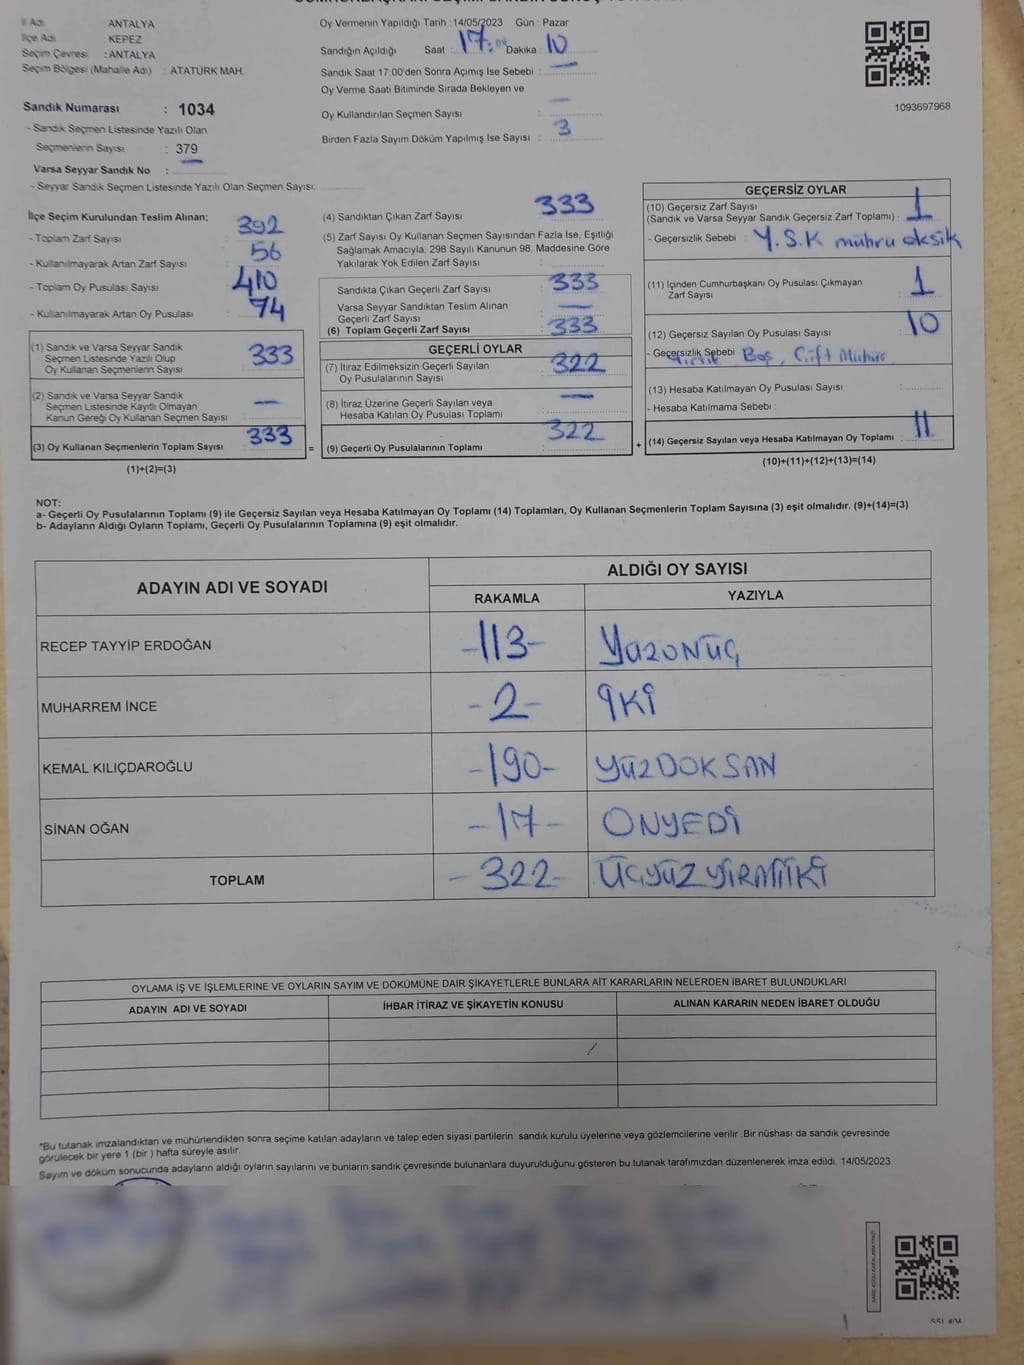 İl Adı : ANTALYA
İlçe Adı : KEPEZ
Seçim Çevresi : ANTALYA
Seçim Bölgesi (Mahalle Adı) : ATATÜRK MAH.
Sandık Numarası : 1034
- Sandık Seçmen Listesinde Yazılı Olan
Seçmenlerin Sayısı : 379
Varsa Seyyar Sandık No :
- Seyyar Sandık Seçmen Listesinde Yazılı Olan Seçmen Sayısı:
Oy Vermenin Yapıldığı Tarih : 14/05/2023 Gün : Pazar
Sandığın Açıldığı Saat : 17:00 Dakika : 10
Sandık Saat 17:00'den Sonra Açımış İse Sebebi : —
Oy Verme Saati Bitiminde Sırada Bekleyen ve
Oy Kullandırılan Seçmen Sayısı : —
Birden Fazla Sayım Döküm Yapılmış İse Sayısı : 3
1093697968
İlçe Seçim Kurulundan Teslim Alınan;
- Toplam Zarf Sayısı 392
- Kullanılmayarak Artan Zarf Sayısı 56
- Toplam Oy Pusulası Sayısı 410
- Kullanılmayarak Artan Oy Pusulası 74
(1) Sandık ve Varsa Seyyar Sandık
Seçmen Listesinde Yazılı Olup
Oy Kullanan Seçmenlerin Sayısı 333
(2) Sandık ve Varsa Seyyar Sandık
Seçmen Listesinde Kayıtlı Olmayan
Kanun Gereği Oy Kullanan Seçmen Sayısı —
(3) Oy Kullanan Seçmenlerin Toplam Sayısı 333
(1)+(2)=(3)
(4) Sandıktan Çıkan Zarf Sayısı 333
(5) Zarf Sayısı Oy Kullanan Seçmen Sayısından Fazla İse, Eşitliği
Sağlamak Amacıyla, 298 Sayılı Kanunun 98. Maddesine Göre
Yakılarak Yok Edilen Zarf Sayısı
Sandıkta Çıkan Geçerli Zarf Sayısı 333
Varsa Seyyar Sandıktan Teslim Alınan
Geçerli Zarf Sayısı —
(6) Toplam Geçerli Zarf Sayısı 333
GEÇERLİ OYLAR
(7) İtiraz Edilmeksizin Geçerli Sayılan
Oy Pusulalarının Sayısı 322
(8) İtiraz Üzerine Geçerli Sayılan veya
Hesaba Katılan Oy Pusulası Toplamı —
= (9) Geçerli Oy Pusulalarının Toplamı 322 +
GEÇERSİZ OYLAR
(10) Geçersiz Zarf Sayısı
(Sandık ve Varsa Seyyar Sandık Geçersiz Zarf Toplamı) : 1
- Geçersizlik Sebebi : Y.S.K mührü eksik
(11) İçinden Cumhurbaşkanı Oy Pusulası Çıkmayan
Zarf Sayısı 1
(12) Geçersiz Sayılan Oy Pusulası Sayısı 10
- Geçersizlik Sebebi Boş, Çift Mühür
(13) Hesaba Katılmayan Oy Pusulası Sayısı
- Hesaba Katılmama Sebebi :
(14) Geçersiz Sayılan veya Hesaba Katılmayan Oy Toplamı : 11
(10)+(11)+(12)+(13)=(14)
NOT:
a- Geçerli Oy Pusulalarının Toplamı (9) ile Geçersiz Sayılan veya Hesaba Katılmayan Oy Toplamı (14) Toplamları, Oy Kullanan Seçmenlerin Toplam Sayısına (3) eşit olmalıdır. (9)+(14)=(3)
b- Adayların Aldığı Oyların Toplamı, Geçerli Oy Pusulalarının Toplamına (9) eşit olmalıdır.
ADAYIN ADI VE SOYADI ALDIĞI OY SAYISI
RAKAMLA YAZIYLA
RECEP TAYYİP ERDOĞAN -113- YÜZONÜÇ
MUHARREM İNCE -2- İKİ
KEMAL KILIÇDAROĞLU -190- YÜZDOKSAN
SİNAN OĞAN -17- ONYEDİ
TOPLAM -322- ÜÇYÜZYİRMİİKİ
OYLAMA İŞ VE İŞLEMLERİNE VE OYLARIN SAYIM VE DÖKÜMÜNE DAİR ŞİKAYETLERLE BUNLARA AİT KARARLARIN NELERDEN İBARET BULUNDUKLARI
ADAYIN ADI VE SOYADI İHBAR İTİRAZ VE ŞİKAYETİN KONUSU ALINAN KARARIN NEDEN İBARET OLDUĞU
*Bu tutanak imzalandıktan ve mühürlendikten sonra seçime katılan adayların ve talep eden siyasi partilerin sandık kurulu üyelerine veya gözlemcilerine verilir. Bir nüshası da sandık çevresinde
görülecek bir yere 1 (bir ) hafta süreyle asılır.
Sayım ve döküm sonucunda adayların aldığı oyların sayılarını ve bunların sandık çevresinde bulunanlara duyurulduğunu gösteren bu tutanak tarafımızdan düzenlenerek imza edildi. 14/05/2023